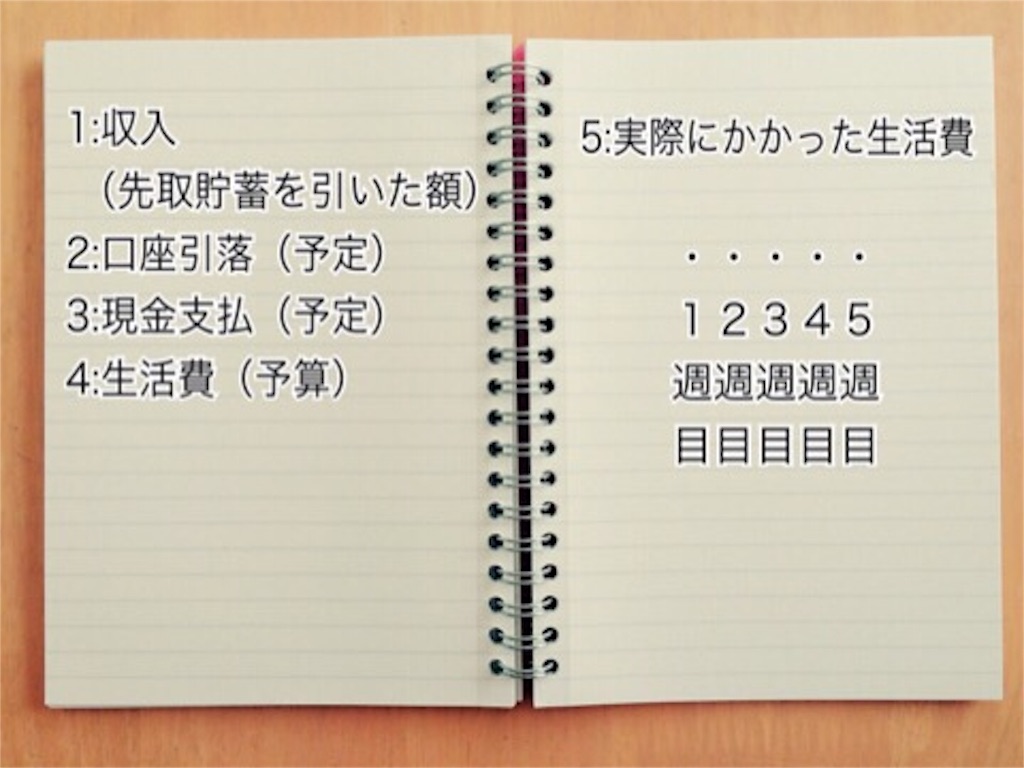 1:収入
（先取貯蓄を引いた額）
2:口座引落（予定）
3:現金支払（予定）
4:生活費（予算）
5:実際にかかった生活費
・・・・・
１２３４５
週週週週週
目目目目目